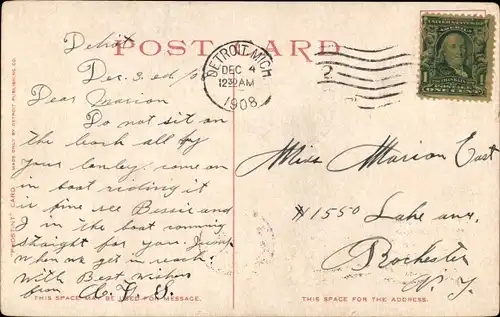 POST CARD
Detroit
Dec. 3rd
Dear Marion
Do not sit on
the bank all by
your lonley come on
in boat riding it
is fine see Bessie and
I in the boat coming
straight for you. Jump
when we get in reach.
With Best wishes
from
THIS SPACE MAY BE USED FOR MESSAGE.
"PHOSTINT" CARD MADE ONLY BY DETROIT PUBLISHING CO.
DETROIT, MICH.
DEC 4
12 30 AM
1908
2
UNITED STATES
FRANKLIN
1 1
ONE CENT
Miss Marion East
#1550
Lake ave.
Rochester
N. Y.
THIS SPACE IS FOR THE ADDRESS.